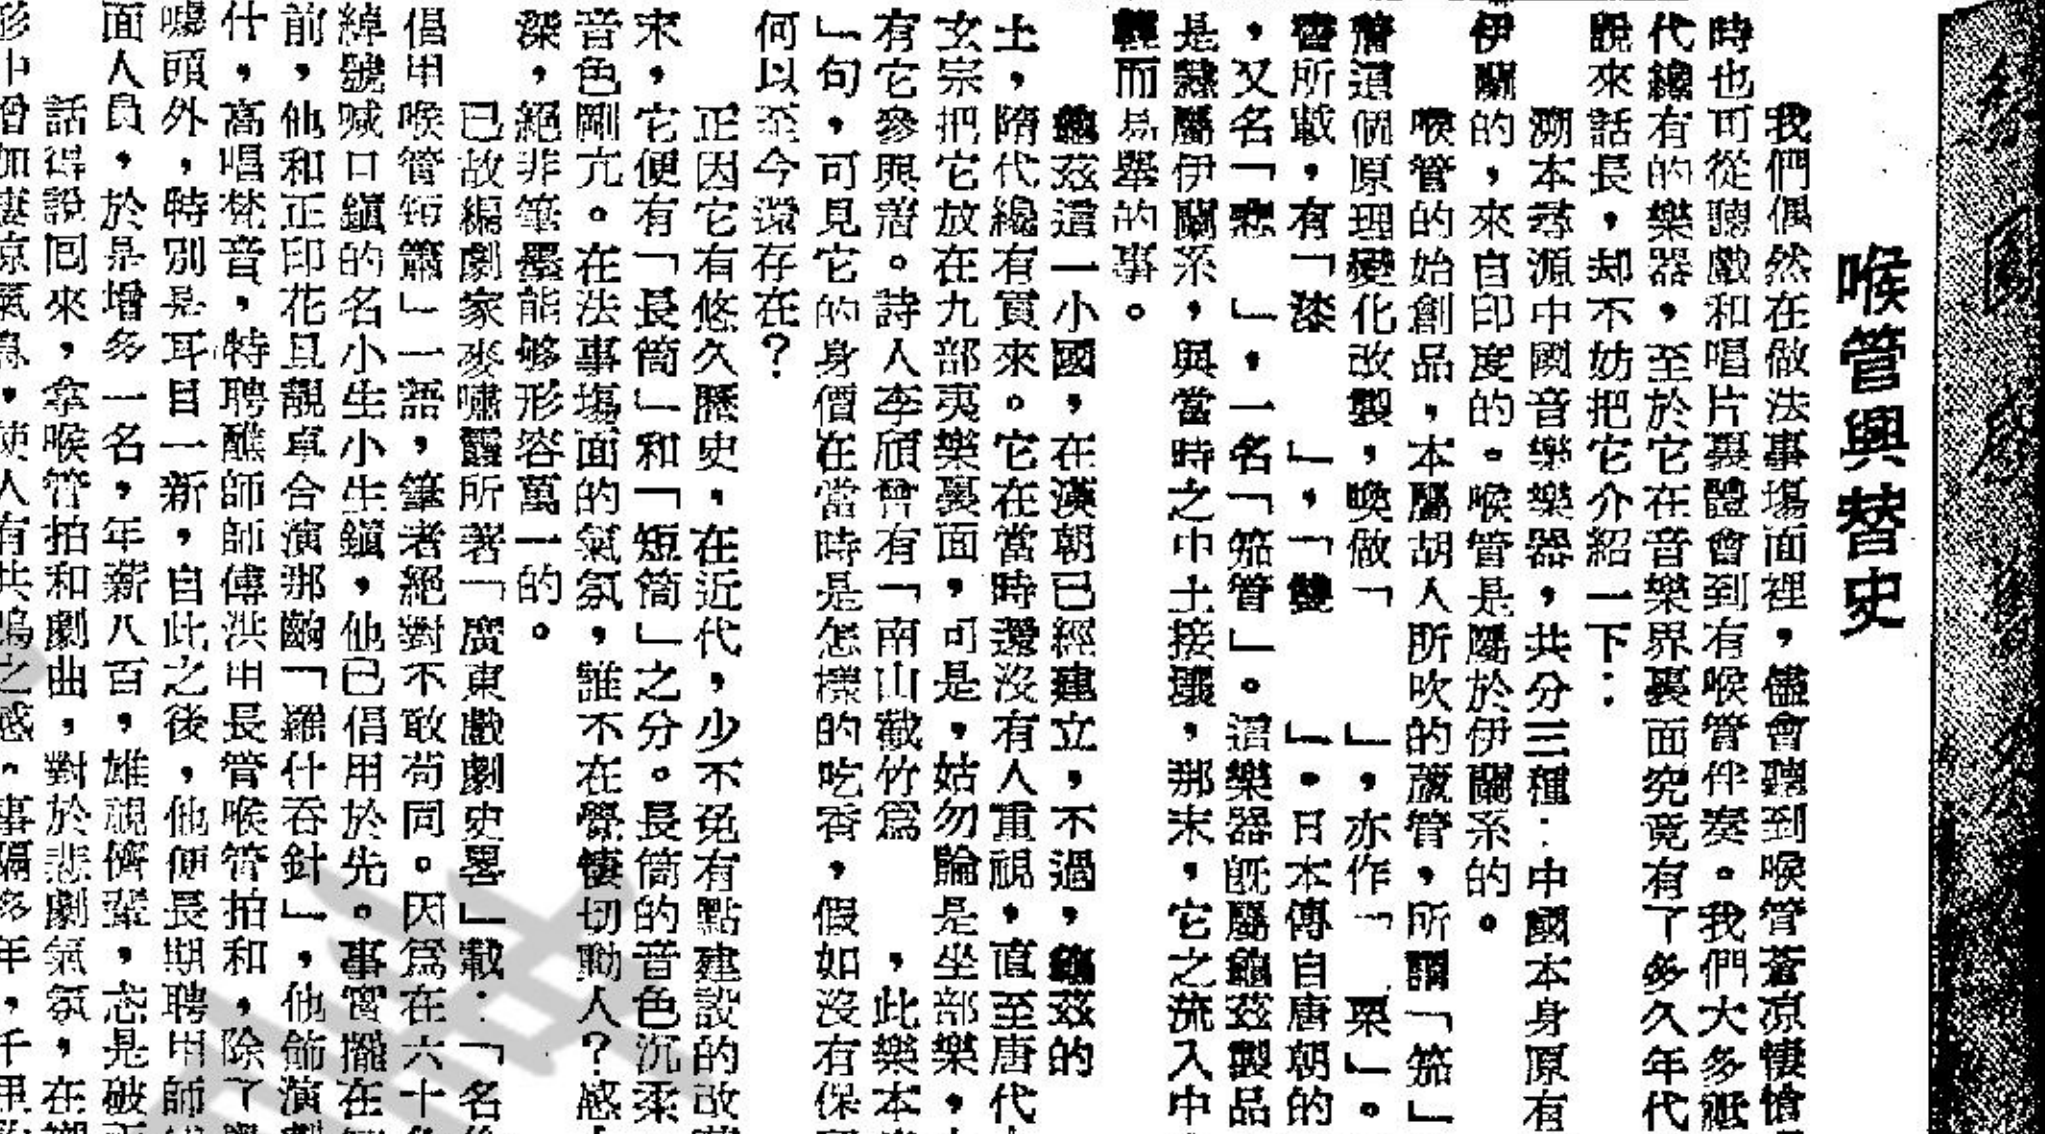 喉管興替史
我們偶然在做法事場面裡，儘會聽到喉管蒼凉悽愴
時也可從聽戲和唱片裏體會到有喉管伴奏。我們大多祇
代纔有的樂器，至於它在音樂界裏面究竟有了多久年代
說來話長，却不妨把它介紹一下：
溯本尋源中國音樂樂器，共分三種：中國本身原有
伊蘭的，來自印度的。喉管是屬於伊蘭系的。
喉管的始創品，本屬胡人所吹的蘆管，所謂「笳」
這個原理變化改製，喚做「　」，亦作「　栗」。
書所載，有「　」，「雙　」。日本傳自唐朝的
，又名「悲　」，一名「笳管」。這樂器既屬龜茲製品
是隸屬伊蘭系，與當時之中土接壤，那末，它之流入中
輕而易舉的事。
龜茲這一小國，在漢朝已經建立，不過，龜茲的
土，隋代纔有實來。它在當時還沒有人重視，直至唐代
玄宗把它放在九部夷樂裏面，可是，姑勿論是坐部樂，
有它參與着。詩人李頎曾有「南山截竹爲　，此樂本
」句，可見它的身價在當時是怎樣的吃香，假如沒有保
何以至今還存在？
正因它有悠久歷史，在近代，少不免有點建設的改
末，它便有「長筒」和「短筒」之分。長筒的音色沉柔
音色剛亢。在法事場面的氣氛，誰不在覺悽切動人？感
深，絕非筆墨能够形容萬一的。
已故編劇家麥嘯霞所著「廣東戲劇史畧」載：「名
倡用喉管短簫」一語，筆者絕對不敢苟同。因爲在六十
綽號喊口鎖的名小生小生鎖，他已倡用於先。事實擺在
前，他和正印花旦靚卓合演那齣「羅什吞針」，他飾演
什，高唱梵音，特聘醮師師傅洪用長管喉管拍和，除了
噱頭外，特別是耳目一新，自此之後，他便長期聘用師
面人員，於是增多一名，年薪八百，雄視儕輩，志是破
話得說囘來，拿喉管拍和劇曲，對於悲劇氣氛，在
增加凄凉氣氛，使人有共鳴之感。事隔多年，千里